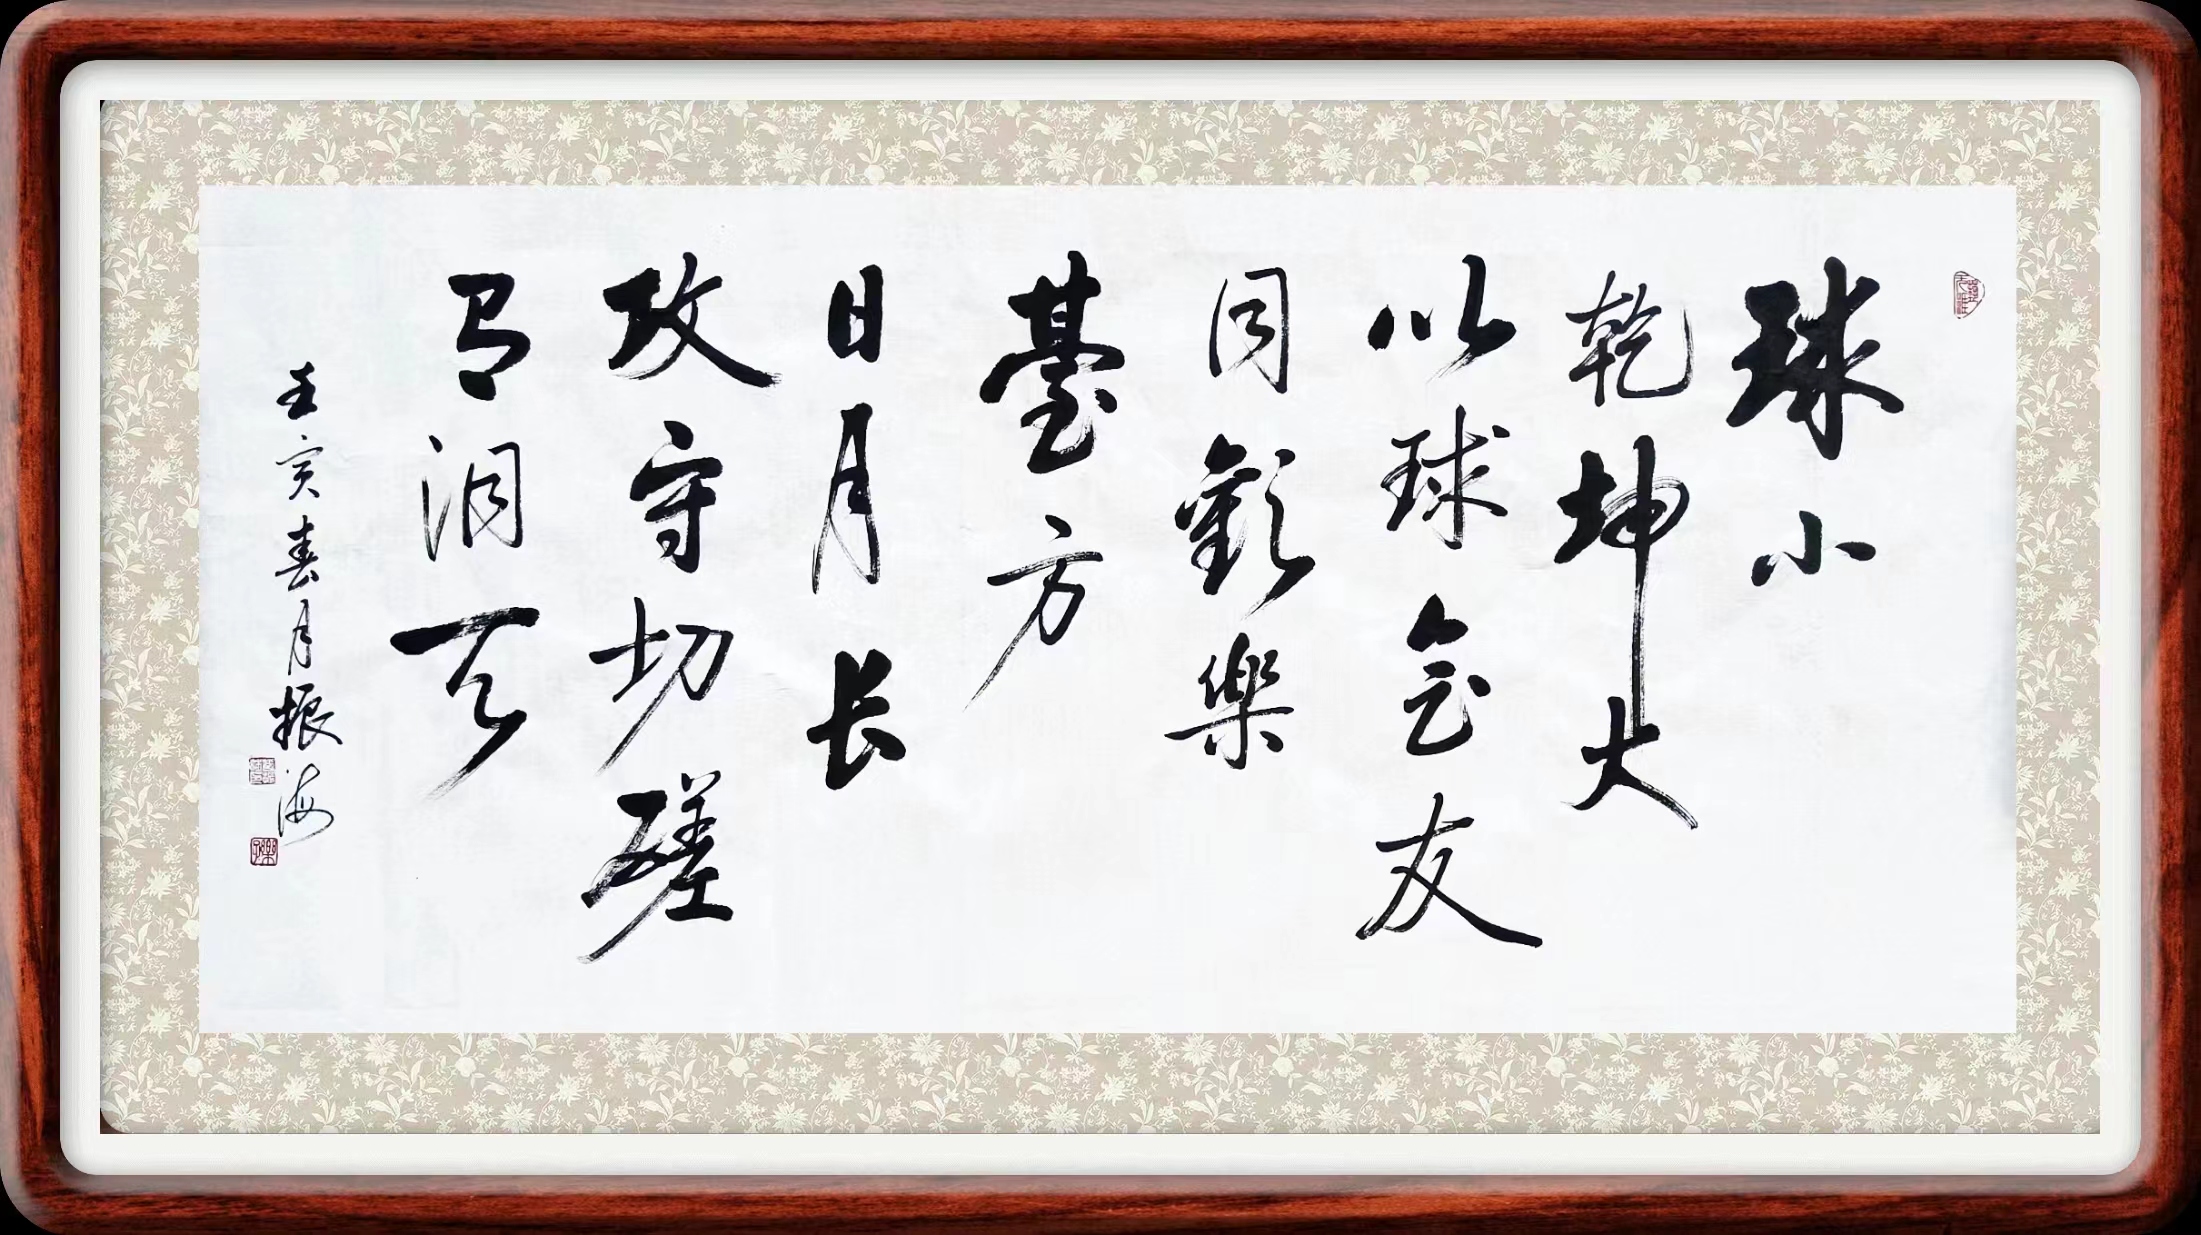 球小
乾坤大
以球会友
同歡樂
臺方
日月长
攻守切磋
有洞天
壬寅春月振海